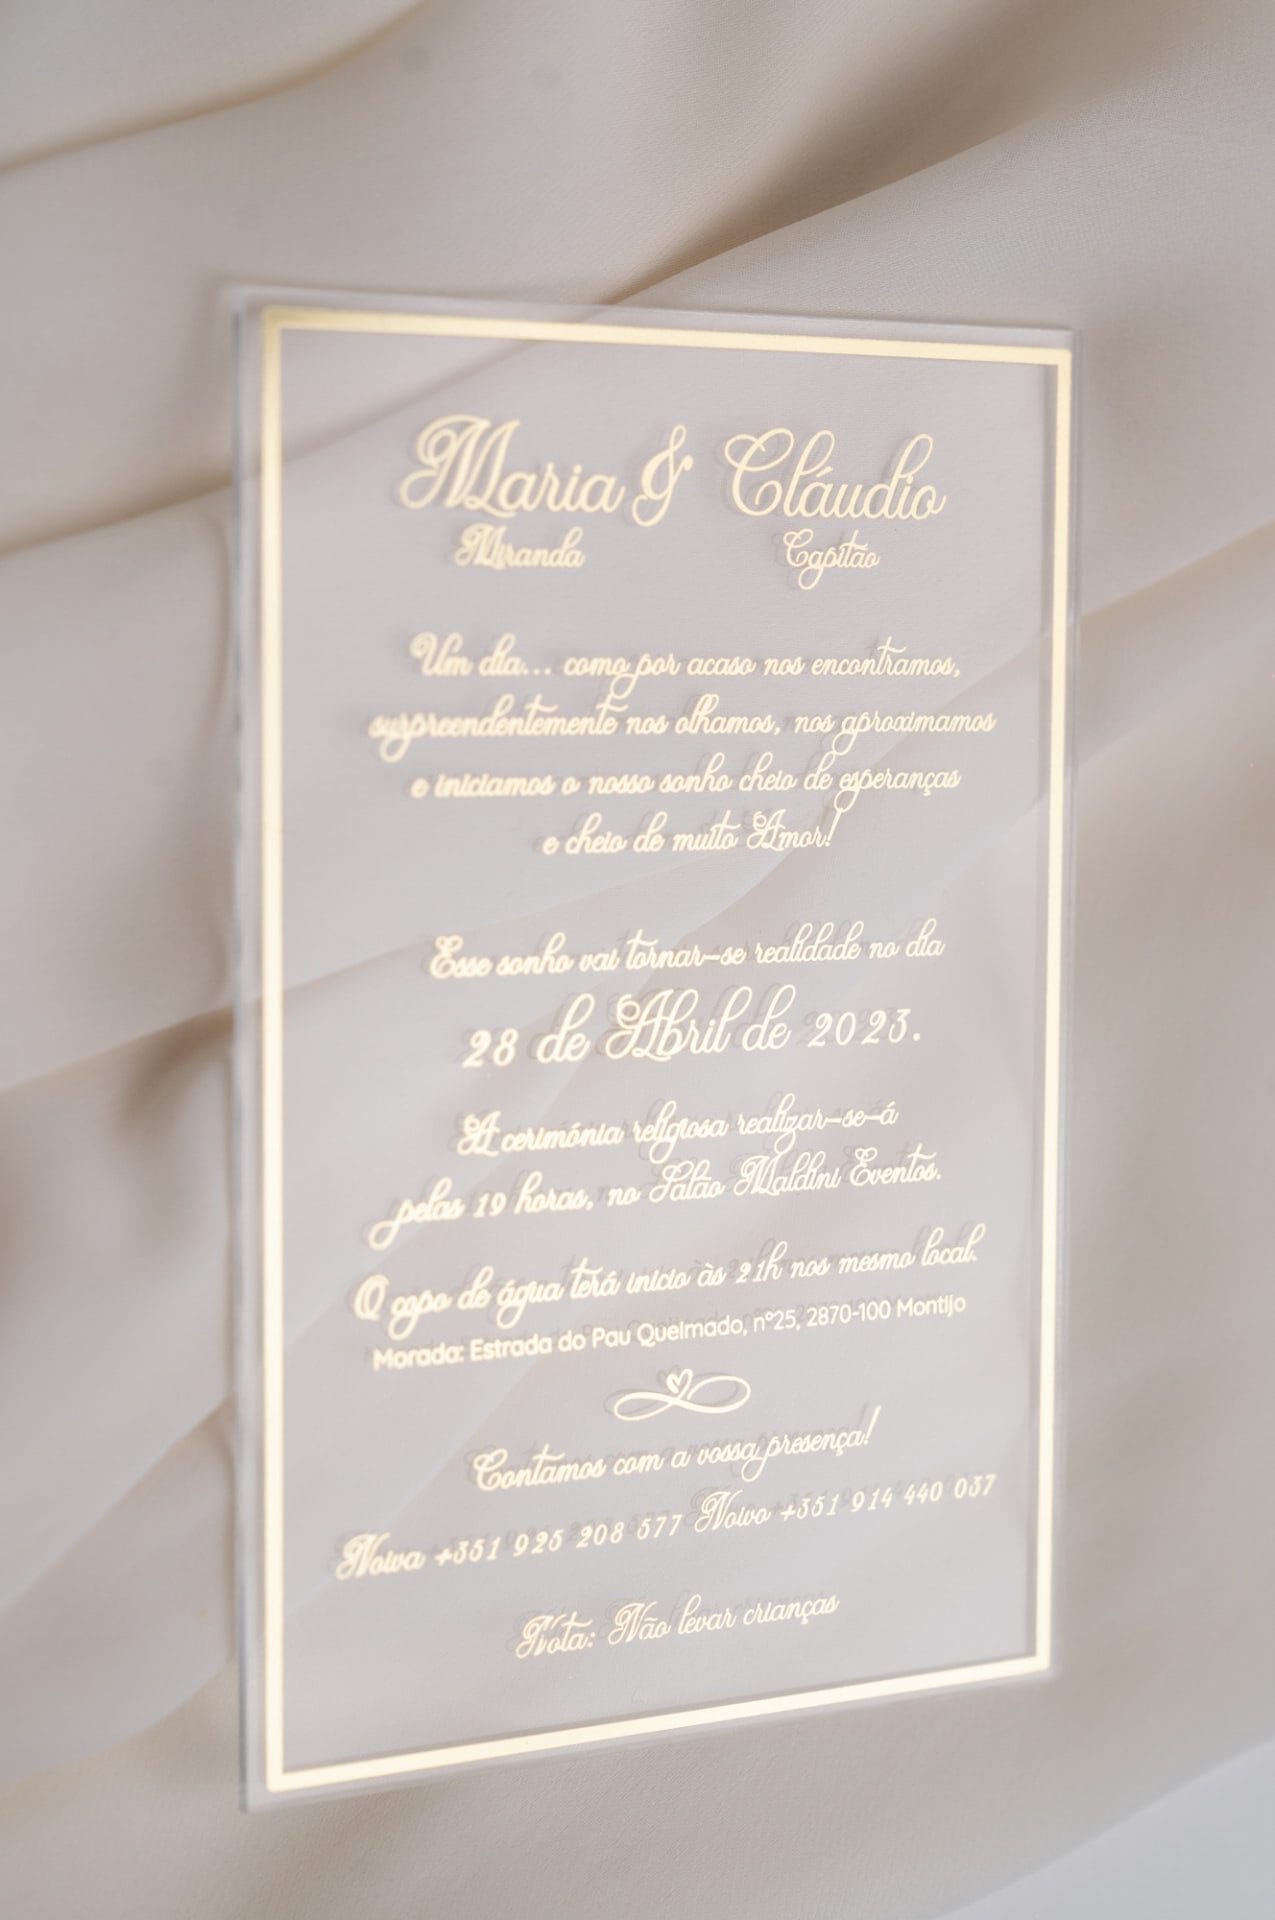 Maria & Cláudio
Miranda Capitão
Um dia... como por acaso nos encontramos,
surpreendentemente nos olhamos, nos aproximamos
e iniciamos o nosso sonho cheio de esperanças
e cheio de muito Amor!
Esse sonho vai tornar-se realidade no dia
28 de Abril de 2023.
A cerimónia religiosa realizar-se-á
pelas 19 horas, no Salão Maldini Eventos.
O copo de água terá inicio às 21h nos mesmo local.
Morada: Estrada do Pau Queimado, nº25, 2870-100 Montijo
Contamos com a vossa presença!
Noiva +351 925 208 577 Noivo +351 914 440 037
Nota: Não levar crianças